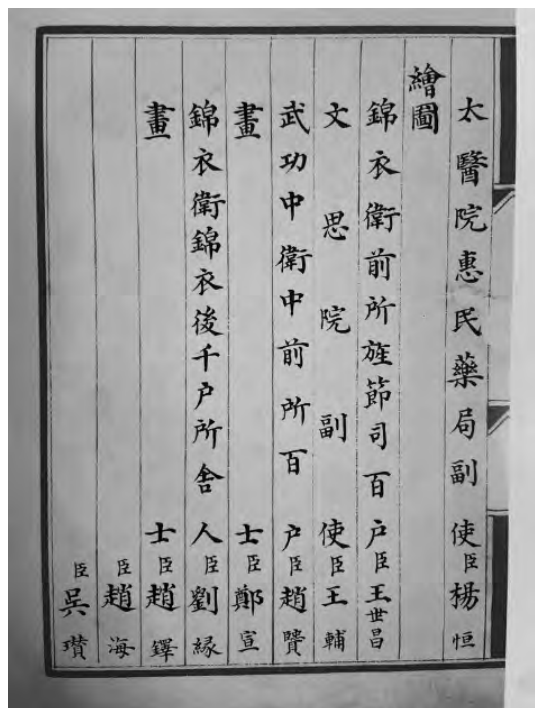 太醫院惠民藥局副使臣楊恒
繪圖
錦衣衛前所旌節司百户臣王世昌
文思院副使臣王輔
武功中衛中前所百户臣趙贇
畫士臣鄭宣
錦衣衛錦衣後千户所舍人臣劉緣
畫士臣趙鐸
臣趙海
臣吳瓚